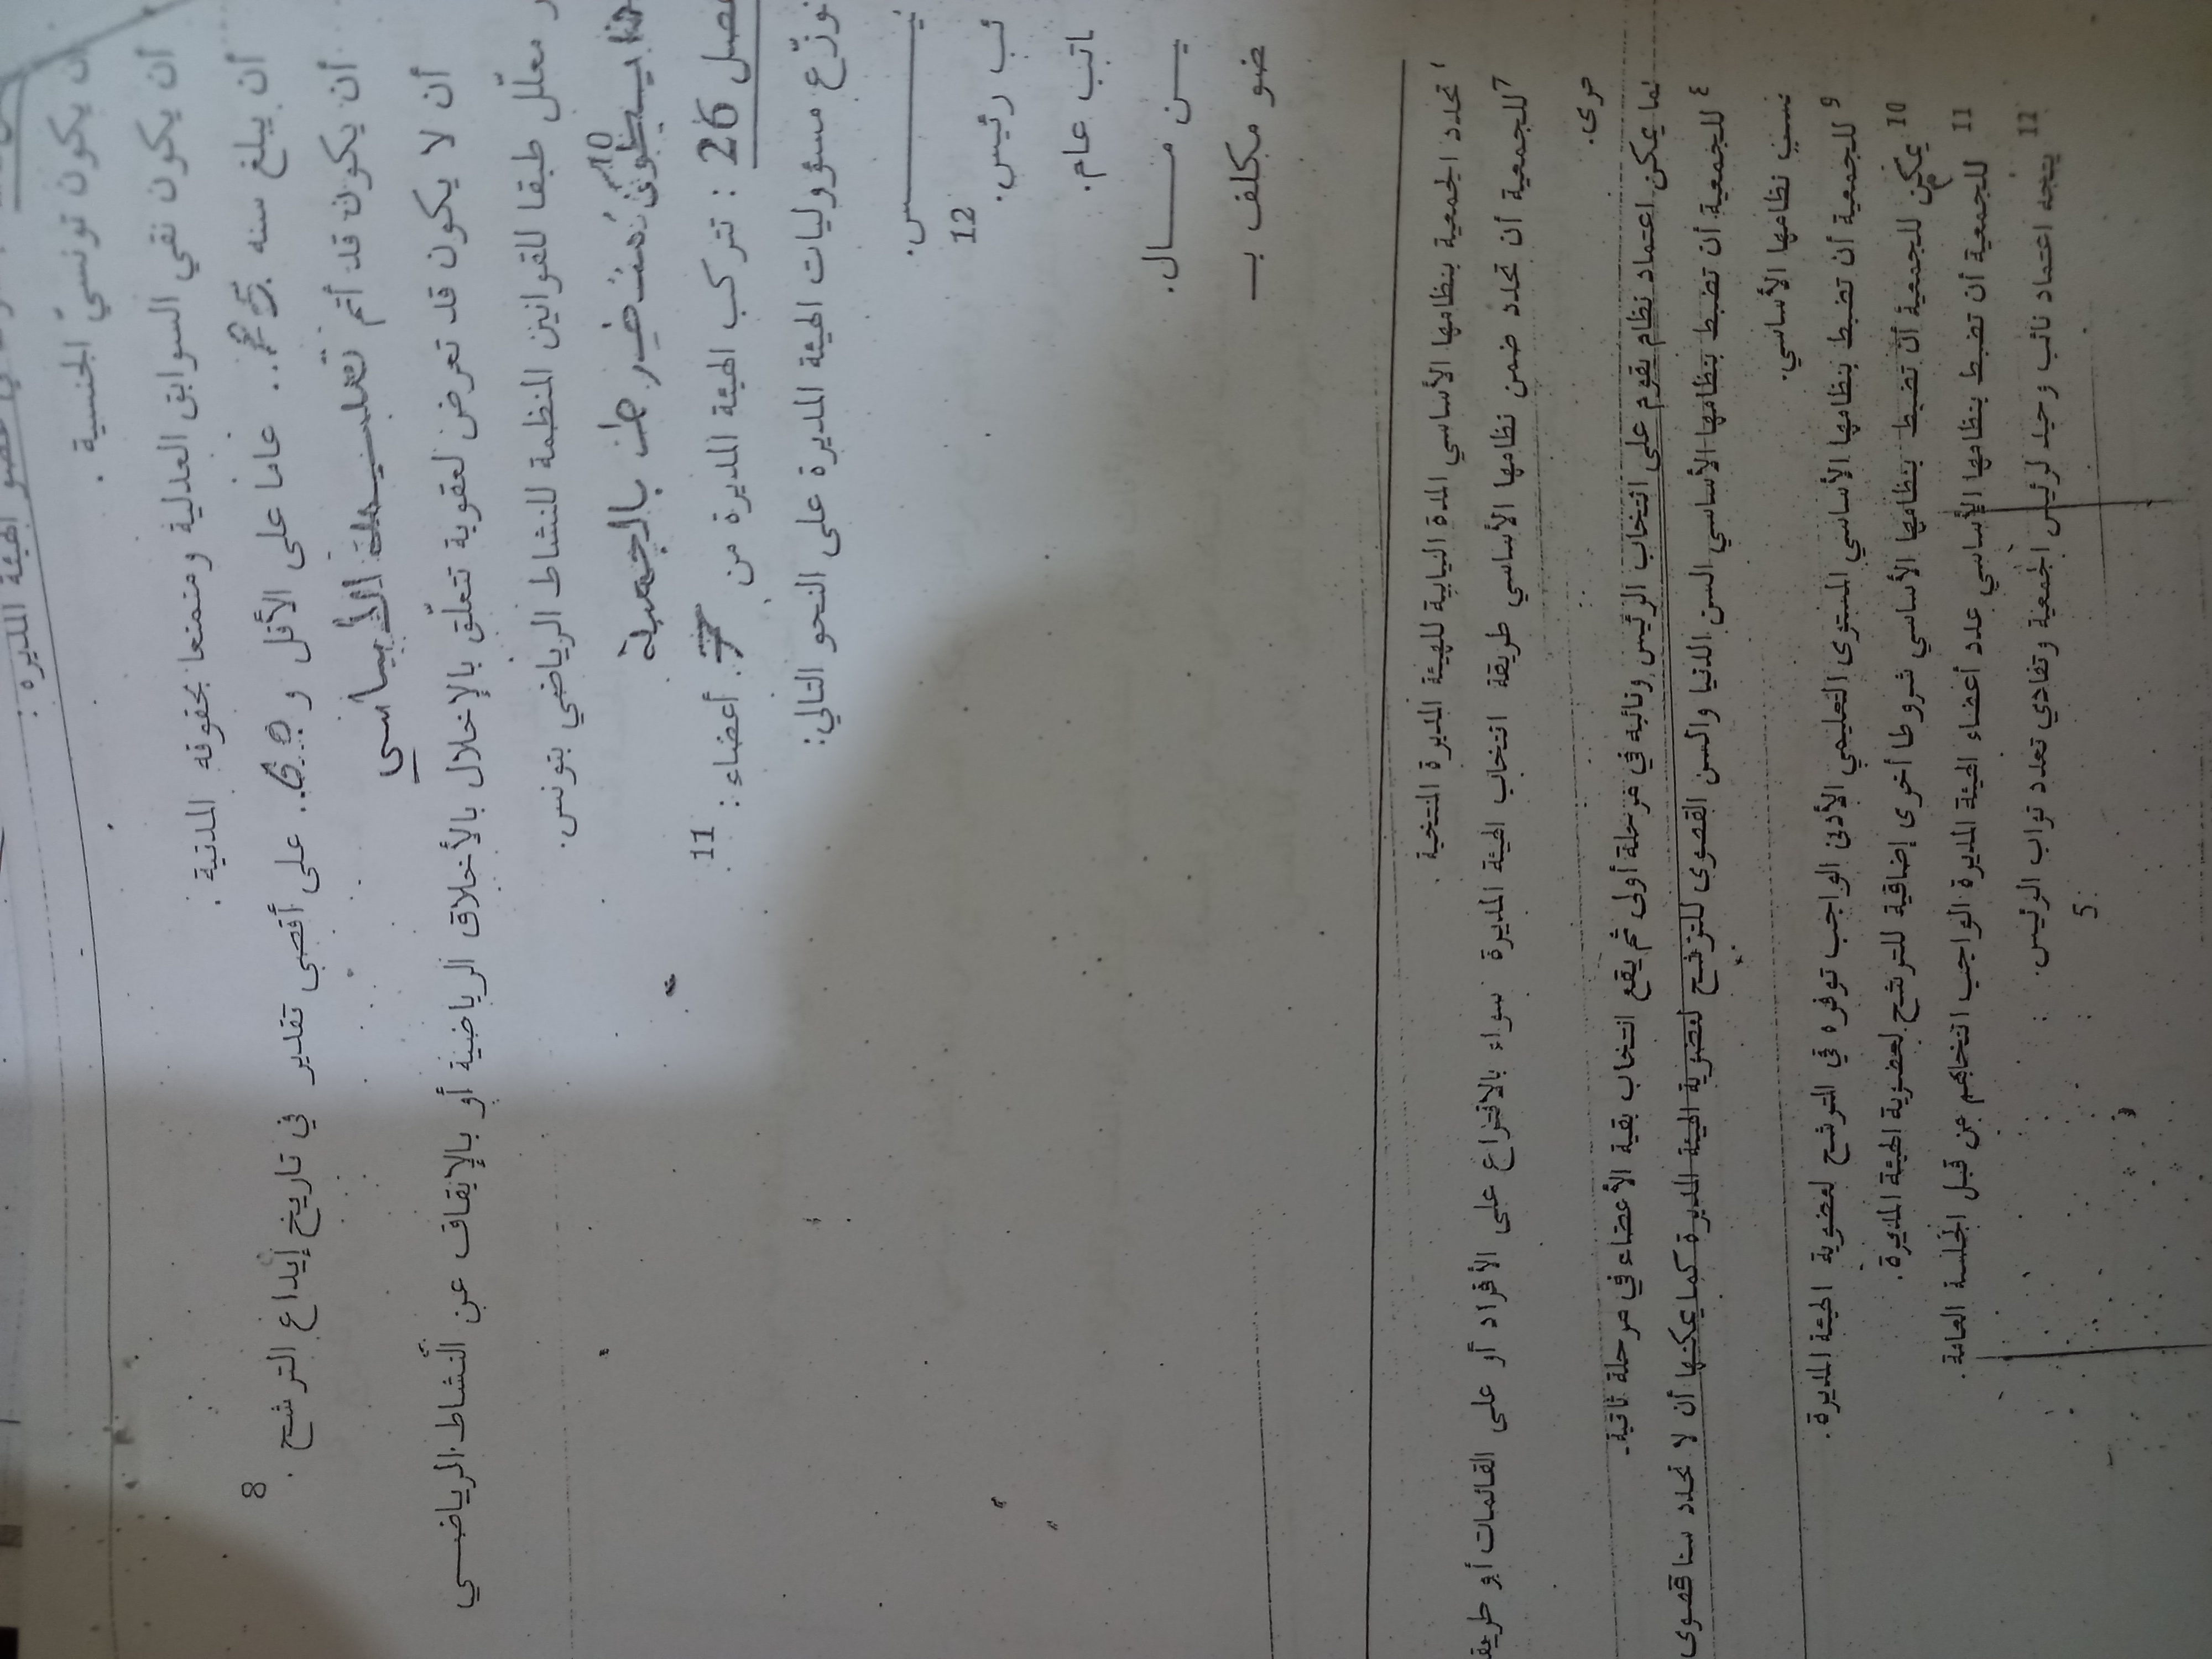 عضو الهيئة المديرة :
أن يكون تونسيّ الجنسية .
أن يكون نقي السوابق العدلية ومتمتعا بحقوقه المدنية .
أن يبلغ سنه عاما على الأقل و على أقصى تقدير في تاريخ إيداع الترشح . 8
أن يكون قد أتم تعليمه الأساسي
أن لا يكون قد تعرض لعقوبة تتعلّق بالإخلال بالأخلاق الرياضية أو بالإيقاف عن النّشاط الرياضي
معلّل طبقا للقوانين المنظمة للنشاط الرياضي بتونس.
بالجمعية
10
26 : تتركب الهيئة المديرة من 7 أعضاء : 11
مسؤوليات الهيئة المديرة على النحو التالي:
رئيس. 12
عام.
مكلف بـ
تحدد الجمعية بنظامها الأساسي المدة النيابية للهيئة المديرة المنتخبة .
7 للجمعية أن تحدد ضمن نظامها الأساسي طريقة انتخاب الهيئة المديرة سواء بالاقتراع على الأفراد أو على القائمات أو
كما يمكن اعتماد نظام يقوم على انتخاب الرئيس ونائبه في مرحلة أولى ثم يقع انتخاب بقية الأعضاء في مرحلة ثانية.
للجمعية أن تضبط بنظامها الأساسي السن الدنيا والسن القصوى للترشح لعضوية الهيئة المديرة كما يمكنها أن لا تحدد سنا قصوى
نظامها الأساسي.
9 للجمعية أن تضبط بنظامها الأساسي المستوى التعليمي الأدنى الواجب توفره في المترشح لعضوية الهيئة المديرة.
10 يمكن للجمعية أن تضبط بنظامها الأساسي شروطا أخرى إضافية للترشح لعضوية الهيئة المديرة.
11 للجمعية أن تضبط بنظامها الأساسي عدد أعضاء الهيئة المديرة الواجب انتخابهم من قبل الجلسة العامة.
12 يتجه اعتماد نائب وحيد لرئيس الجمعية وتفادي تعدد نواب الرئيس.
5